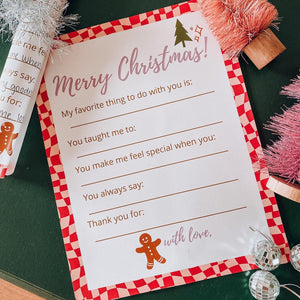 Merry Christmas!
My favorite thing to do with you is:
You taught me to:
You make me feel special when you:
You always say:
Thank you for:
with love,
always say:
for: